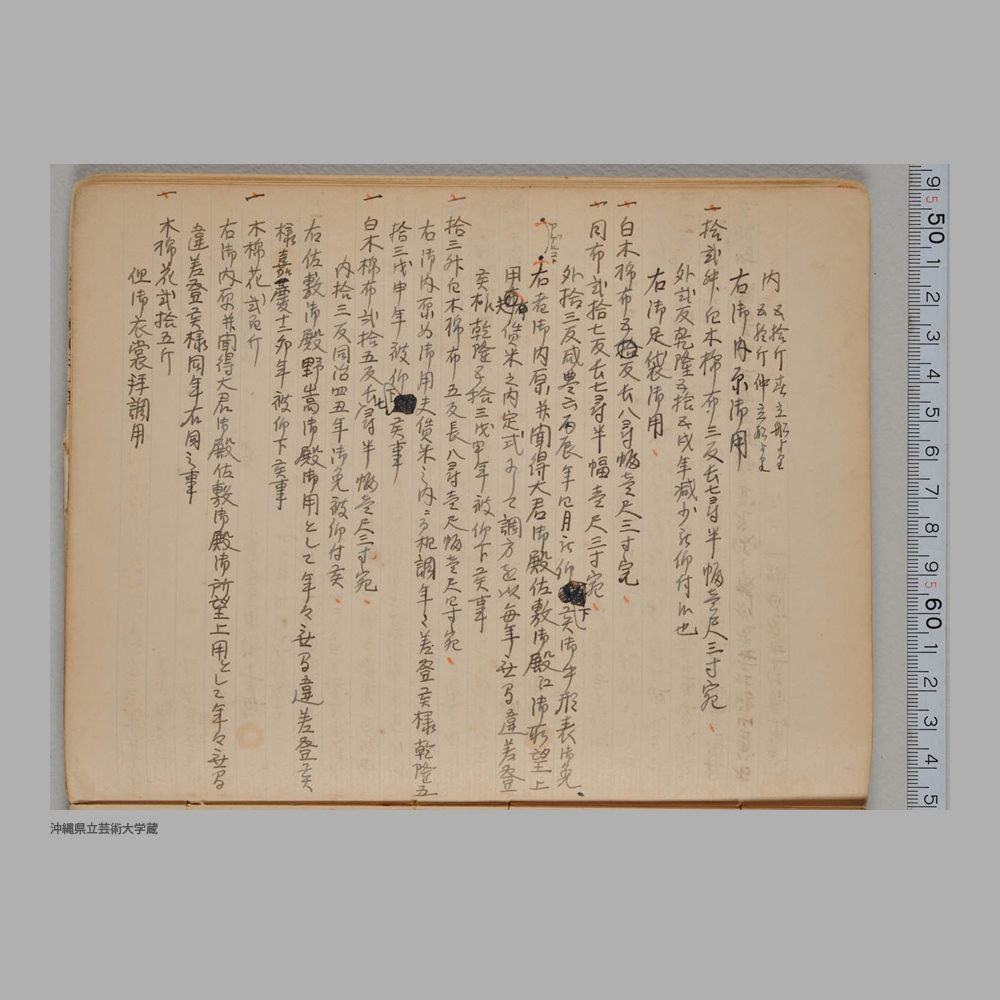 内 五拾斤 春立船より
五拾斤 仲立船より
右御内原御用
一 拾弐舛白木棉布三反長七尋半幅壱尺三寸宛
外弐反乾隆五拾五戌年減少被仰付候也
右御足袋御用
一 白木棉布五拾反長八尋幅壱尺三寸宛
一 同布弐拾七反長七尋半幅壱尺三寸宛
外拾三反咸豊六丙辰年 月被仰下 御手形表御免
右者御内原并聞得大君御殿佐敷御殿江御所望上
用布 賃米之内定式 調方を以毎年無間違差登
候 乾隆 拾三戊申年被仰下候事
一 拾三舛白木棉布五反長八尋壱尺幅壱尺 寸宛
右御内原為御用夫賃米之内 相調年々差登候様乾隆五
拾三戊申年被仰下候事
一 白木棉布弐拾五反長七尋半幅壱尺三寸宛
内拾三反同治四丑年御免被仰付候
右佐敷御殿野嵩御殿御用として年々無間違差登候
様嘉慶十二卯年被仰下候事
一 木棉花弐百斤
右御内原并聞得大君御殿佐敷御殿御所望上用として年々無間
違差登候様同年右同之事
一 木棉花弐拾五斤
但御衣裳拝調用
9 50 1 2 3 4 5 6 7 8 9 60 1 2 3 4 5
沖縄県立芸術大学蔵